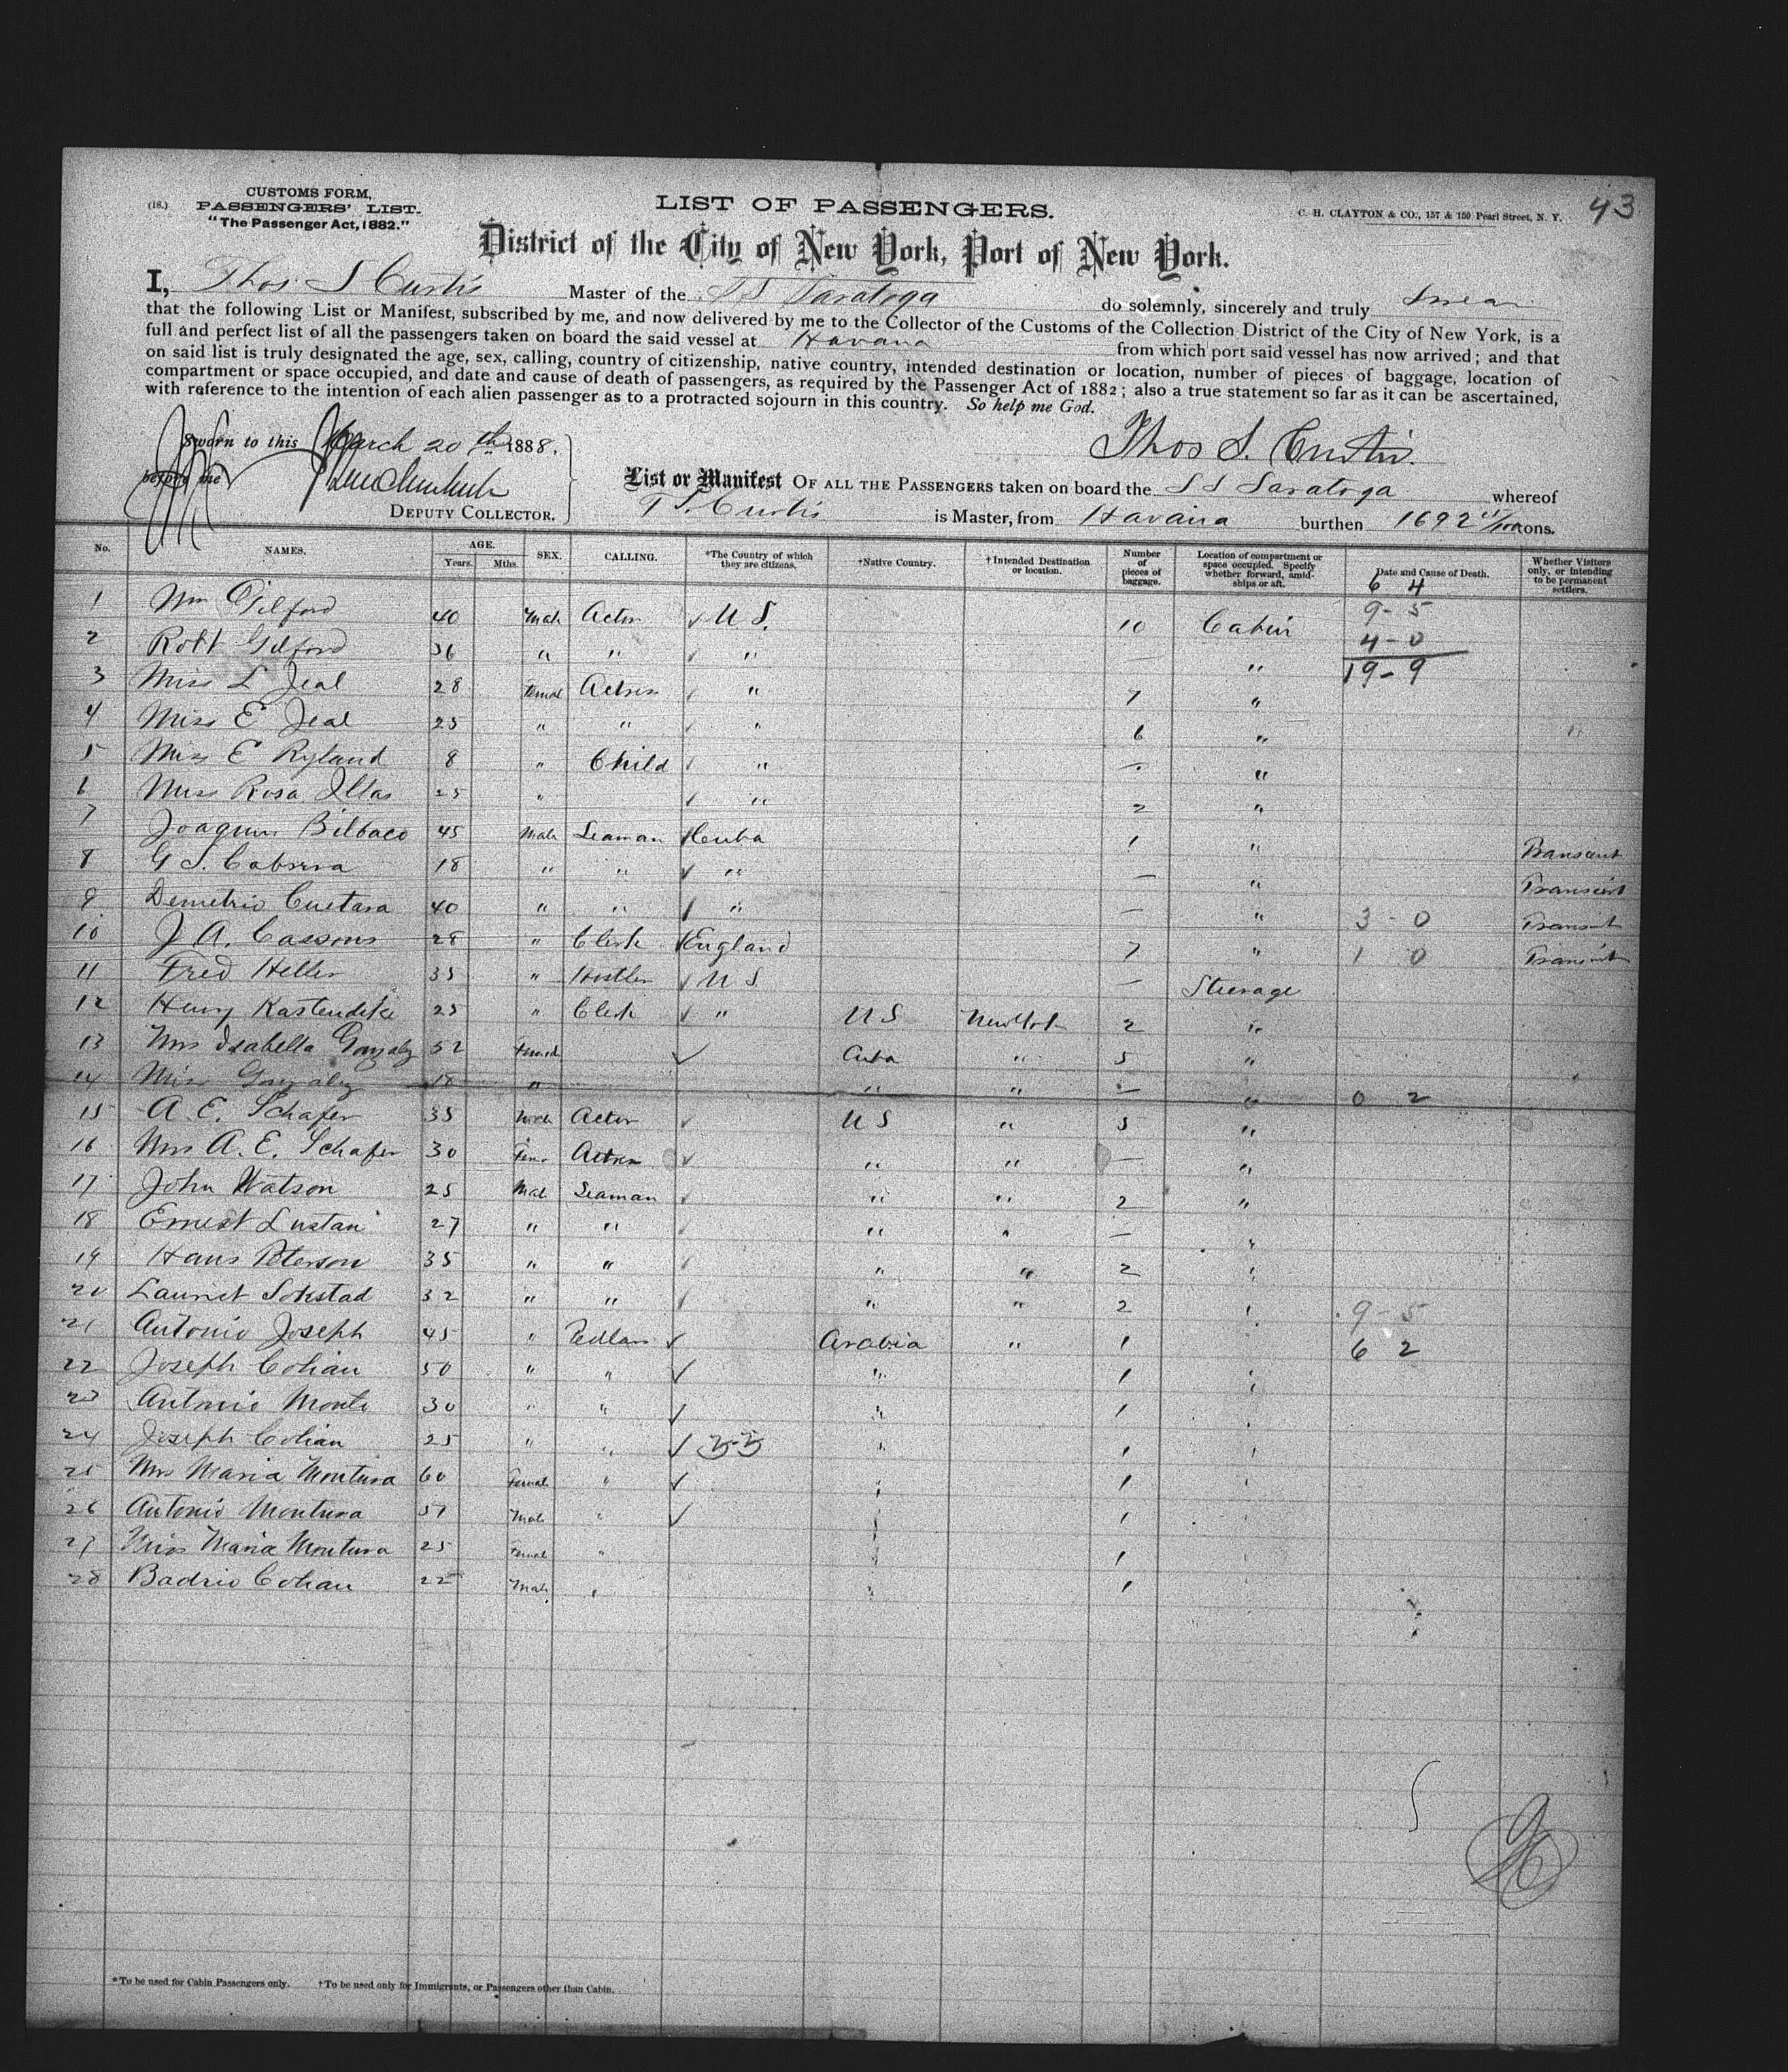 43
(18.)
CUSTOMS FORM,
PASSENGERS' LIST.
"The Passenger Act, 1882."
LIST OF PASSENGERS.
C. H. CLAYTON & CO., 157 & 159 Pearl Street, N. Y.
District of the City of New York, Port of New York.
I, Thos S Curtis Master of the SS Saratoga do solemnly, sincerely and truly swear
that the following List or Manifest, subscribed by me, and now delivered by me to the Collector of the Customs of the Collection District of the City of New York, is a
full and perfect list of all the passengers taken on board the said vessel at Havana from which port said vessel has now arrived; and that
on said list is truly designated the age, sex, calling, country of citizenship, native country, intended destination or location, number of pieces of baggage, location of
compartment or space occupied, and date and cause of death of passengers, as required by the Passenger Act of 1882; also a true statement so far as it can be ascertained,
with reference to the intention of each alien passenger as to a protracted sojourn in this country. So help me God.
Sworn to this March 20th 1888.
before me
Thos S. Curtis.
DEPUTY COLLECTOR.
List or Manifest OF ALL THE PASSENGERS taken on board the SS Saratoga whereof
T S. Curtis is Master, from Havana burthen 1692 /100 tons.
No. NAMES. AGE. Years. Mths. SEX. CALLING. *The Country of which they are citizens. †Native Country. †Intended Destination or location. Number of pieces of baggage. Location of compartment or space occupied. Specify whether forward, amidships or aft. Date and Cause of Death. Whether Visitors only, or intending to be permanent settlers.
6 4
9-5
4-0
19-9
1 Wm Gilford 40 Male Actor ✓ U S. 10 Cabin
2 Robt Gilford 36 " " ✓ " — "
3 Miss L Jeal 28 Femal Actress ✓ " 7 "
4 Miss E Jeal 25 " " ✓ " 6 "
5 Miss E Ryland 8 " Child ✓ " — "
6 Miss Rosa Illas 25 " ✓ " 2 "
7 Joaquin Bilbaco 45 Male Seaman ✓ Cuba 1 " Transient
8 G S. Cabrera 18 " " ✓ " — " Transient
9 Demetrio Cuetara 40 " " ✓ " — " 3-0 Transient
10 J A. Cassons 28 " Clerk ✓ England 7 " 1 0 Transient
11 Fred Heller 35 " Hostler ✓ U S — Steerage
12 Henry Kastendike 25 " Clerk ✓ " U S New York 2 "
13 Mrs Isabella Gonzalez 52 Femal ✓ Cuba " 5 "
14 Miss Gonzalez 18 " " " — " 0 2
15 A. E. Schafer 35 Male Actor ✓ U S " 5 "
16 Mrs A. E. Schafer 30 Fem Actress ✓ " " — "
17 John Watson 25 Mal Seaman ✓ " " 2 "
18 Ernest Lustan 27 " " ✓ " " — "
19 Hans Peterson 35 " " ✓ " " 2 "
20 Sokstad 32 " " ✓ " " 2 " 9-5
21 Antonio Joseph 45 " Pedlar ✓ Arabia " 1 6 2
22 Joseph Cohan 50 " " ✓ " 1 "
23 Antonio Monte 30 " " ✓ " 1 "
24 Joseph Cohan 25 " " ✓ " 1 "
25 Mrs Maria Montura 60 Female " ✓ " 1 "
26 Antonio Montura 51 Male " ✓ " 1 "
27 Miss Maria Montura 25 Femal " " 1 "
28 Badrio Cohan 22 Male " " 1
*To be used for Cabin Passengers only. †To be used only for Immigrants, or Passengers other than Cabin.